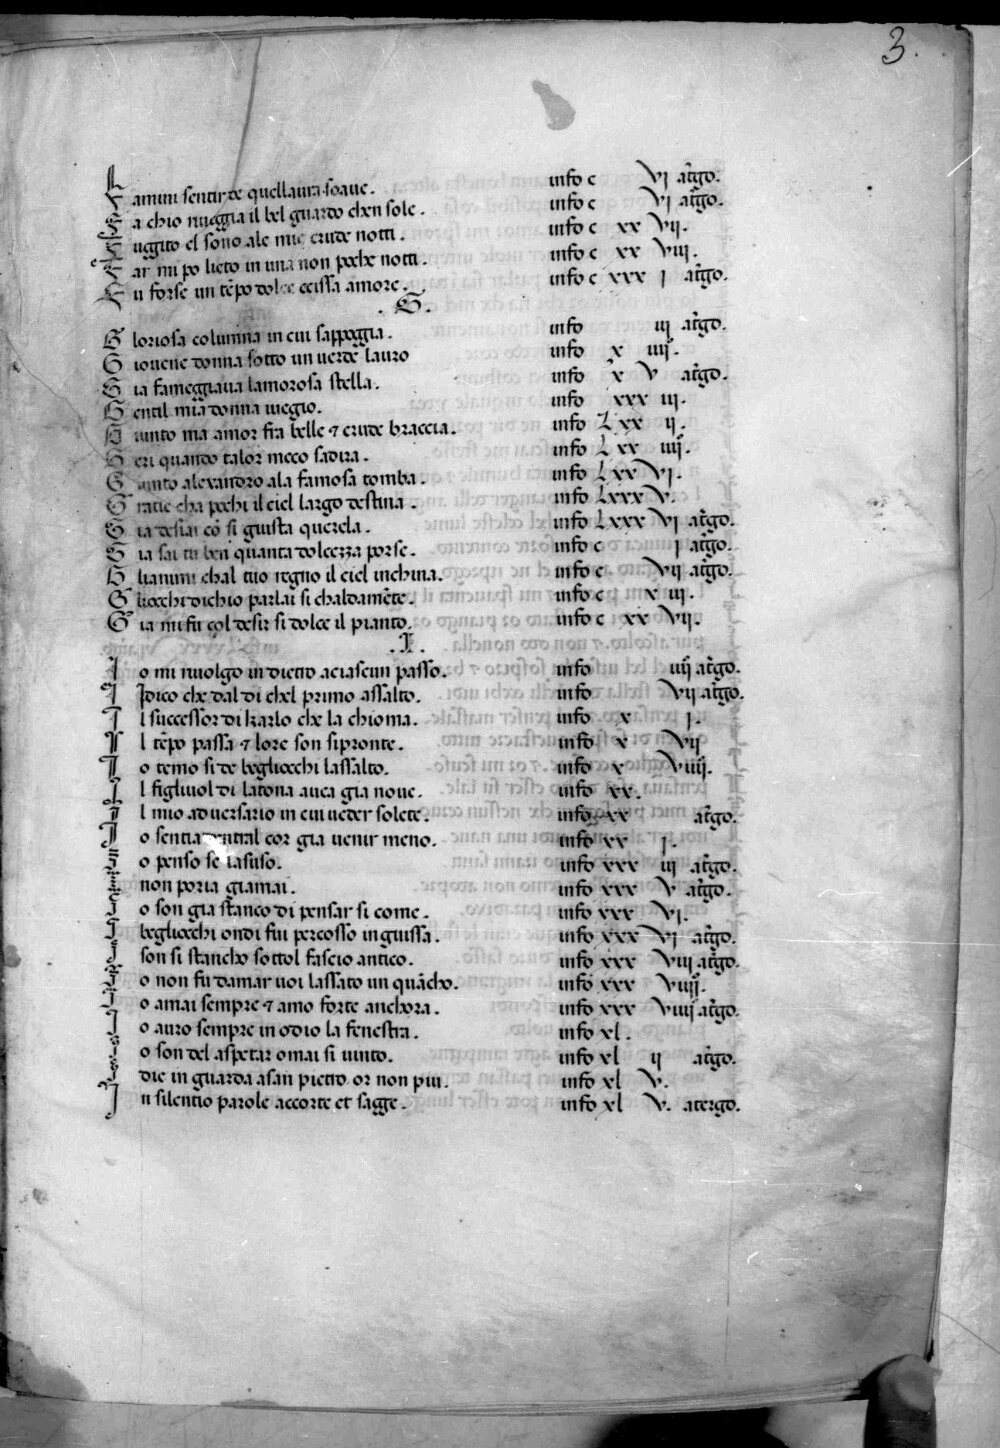 3.
F ammi sentir de quellaura soaue. info c VI at̃go.
F a chio riueggia il bel guardo chen sole. info c VI at̃go.
F uggito el sono ale mie crude notti. info c xx VII.
F ar mi po lieto in una non poche notti. info c xx VIII.
F u forse un tẽpo dolce cossa amore. info c xxx I at̃go.
.G.
G loriosa columna in cui sappoggia. info III at̃go.
G iouene donna sotto un uerde lauro info x IIII.
G ia fameggiaua lamorosa stella. info x V at̃go.
G entil mia donna ueggio. info xxx III.
G iunto ma amor fra belle & crude braccia. info Lxx II.
G eri quando talor meco sadira. info Lxx IIII.
G iunto alexandro ala famosa tomba. info Lxx VI.
G ratie cha pochi il ciel largo destina. info Lxxx V.
G ia desiai cõ si giusta querela. info Lxxx VI at̃go.
G ia sai tu ben quanta dolcezza porse. info c I at̃go.
G lianimi chal tuo regno il ciel inchina. info c VII at̃go.
G liocchi dichio parlai si chaldamẽte. info c x III.
G ia mi fu col desir si dolce il pianto. info c xx VII.
.I.
I o mi riuolgo in dietro aciascun passo. info IIII at̃go.
I Idico che dal di chel primo assalto. info VII at̃go.
I l successor di karlo che la chioma. info x I.
I l tẽpo passa & lore son si pronte. info x VII
I o temo si de begliocchi lassalto. info x VIIII.
I l figliuol di latona auea gia noue. info xx.
I l mio aduersario in cui ueder solete. info xx at̃go.
I o sentia dentral cor gia uenir meno. info xx I.
I o penso se lasuso. info xxx III at̃go.
I non poria giamai. info xxx V at̃go.
I o son gia stanco di pensar si come. info xxx VI.
I begliocchi ondi fui percosso in guissa. info xxx VI at̃go.
I son si stancho sottol fascio antico. info xxx VIII at̃go.
I o non fu damar uoi lassato un quãcho. info xxx VIIII.
I o amai sempre & amo forte anchora. info xxx VIIII at̃go.
I o auro sempre in odio la fenestra. info xl.
I o son del aspetar omai si uinto. info xl II at̃go.
I die in guarda asan pietro or non piu. info xl V.
I n silentio parole accorte et sagge. info xl V. atergo.